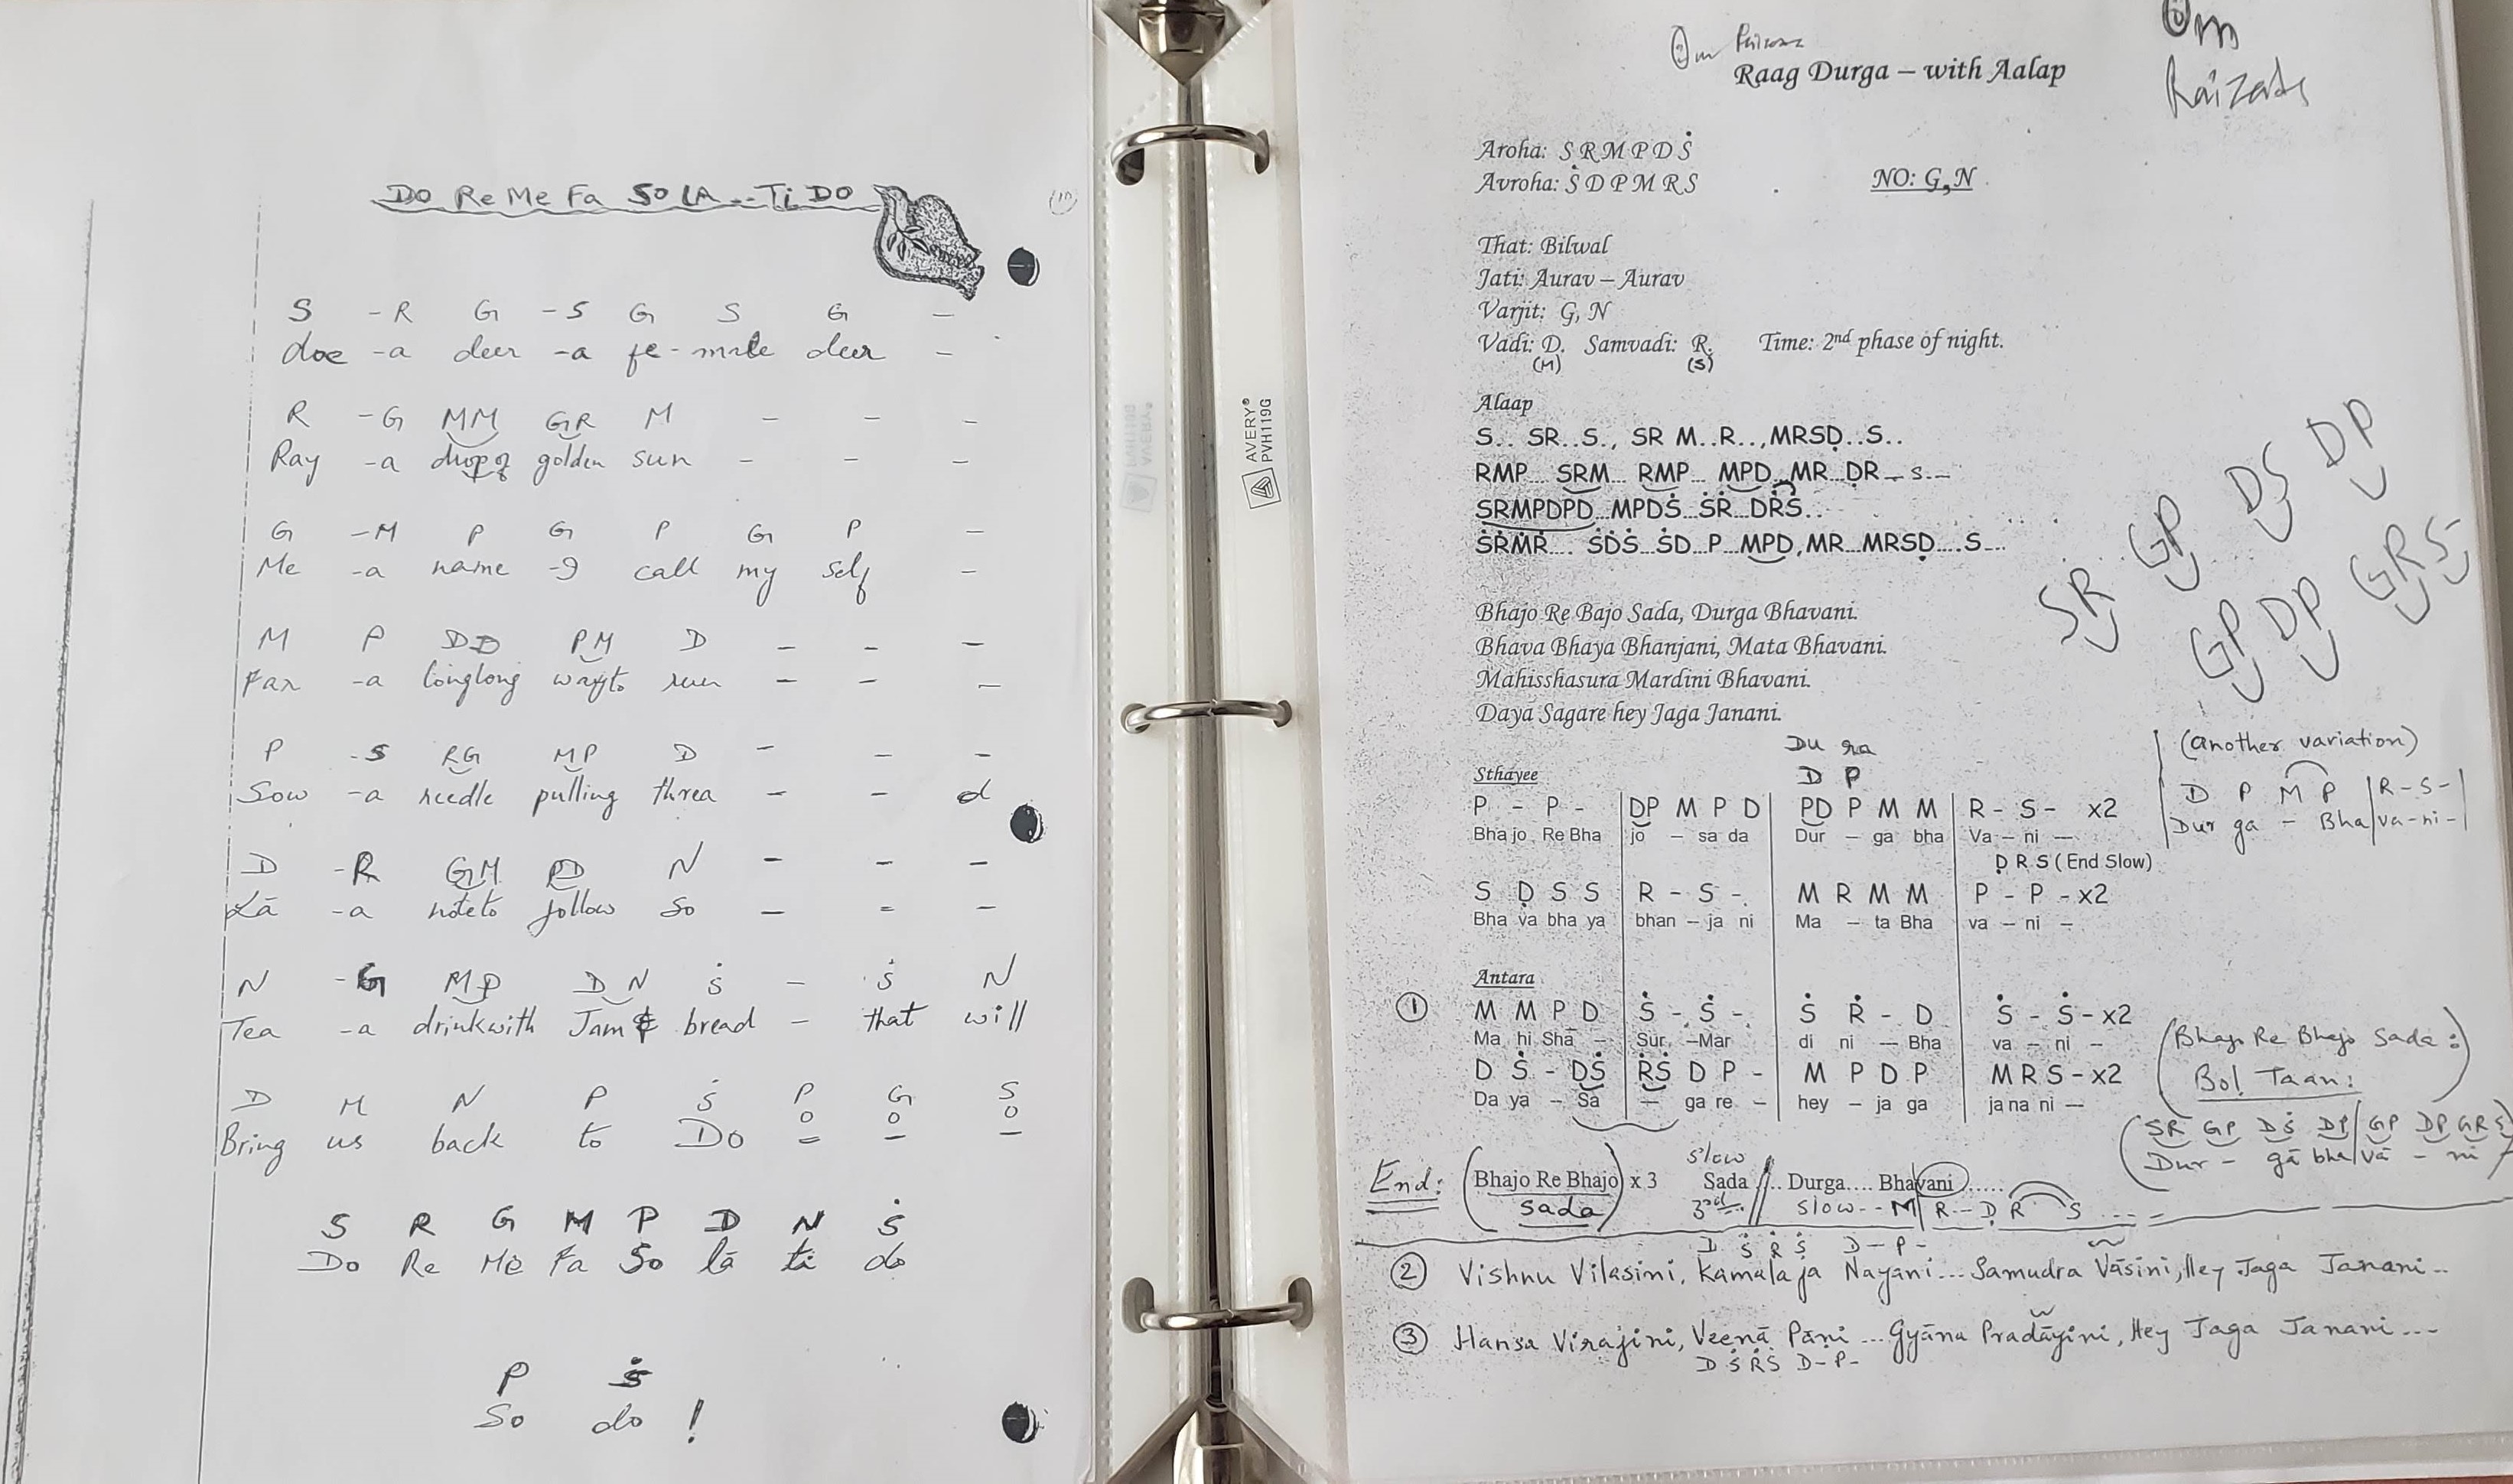 DO Re Me Fa SO LA -- Ti DO
S -R G -S G S G -
doe -a deer -a fe-male deer -
R -G MM GR M - - -
Ray -a drop of golden sun - - -
G -M P G P G P -
Me -a name -I call my self -
M P DD PM D - - -
Far -a longlong wayto run - - -
P -S RG MP D - - -
Sow -a needle pulling threa - - d
D -R GM PD N - - -
Lā -a noteto follow so - = -
N -G MP DN Ṡ - Ṡ N
Tea -a drinkwith Jam & bread - that will
D M N P Ṡ P G S
Bring us back to Do o o o
S R G M P D N Ṡ
Do Re Me Fa So lā ti do
P Ṡ
So do !
AVERY®
PVH119G
Om
Om
Raizada
Raag Durga – with Aalap
Aroha: S R M P D Ṡ
Avroha: Ṡ D P M R S
NO: G, N
That: Bilwal
Jati: Aurav – Aurav
Varjit: G, N
Vadi: D. Samvadi: R. Time: 2nd phase of night.
(M) (S)
Alaap
S.. SR..S., SR M..R..,MRSḌ..S..
RMP... SRM... RMP... MPD...MR...ḌR – S.--
SRMPDPD...MPDṠ...ṠṘ...DṘṠ..
ṠṘṀṘ.... ṠDṠ...ṠD...P...MPD,MR...MRSḌ....S...
SR GP DS DP
GP DP GRS-
Bhajo Re Bajo Sada, Durga Bhavani.
Bhava Bhaya Bhanjani, Mata Bhavani.
Mahisshasura Mardini Bhavani.
Daya Sagare hey Jaga Janani.
Du ra
D P
Sthayee
P - P - | DP M P D | PD P M M | R - S - x2
Bha jo Re Bha jo – sa da Dur – ga bha Va – ni –
(another variation)
D P M P | R-S-|
Dur ga - Bha|va-ni-|
Ḍ R S (End Slow)
S Ḍ S S | R - S -. | M R M M | P - P - x2
Bha va bha ya bhan – ja ni Ma – ta Bha va – ni –
Antara
① M M P D | Ṡ - Ṡ -. | Ṡ Ṙ - D | Ṡ - Ṡ - x2
Ma hi Shā – Sur –Mar di ni – Bha va – ni –
D Ṡ - DṠ | ṘṠ D P - | M P D P | M R S - x2
Da ya – Sa – ga re – hey – ja ga ja na ni –
(Bhajo Re Bhajo Sada:)
Bol Taan:
(SR GP DṠ DP | GP DP GR S
Dur - gā bha|vā - ni)
End: (Bhajo Re Bhajo) x 3 Sada //... Durga.... Bhavani......
Sada
slow
3rd
slow -- M| R -- Ḍ R S ----
D Ṡ Ṙ Ṡ D - P -
② Vishnu Vilasini, Kamalaja Nayani... Samudra Vāsini, Hey Jaga Janani..
③ Hansa Virajini, Veenā Pāni ... Gyāna Pradāyini, Hey Jaga Janani ---
D Ṡ Ṙ Ṡ D-P-